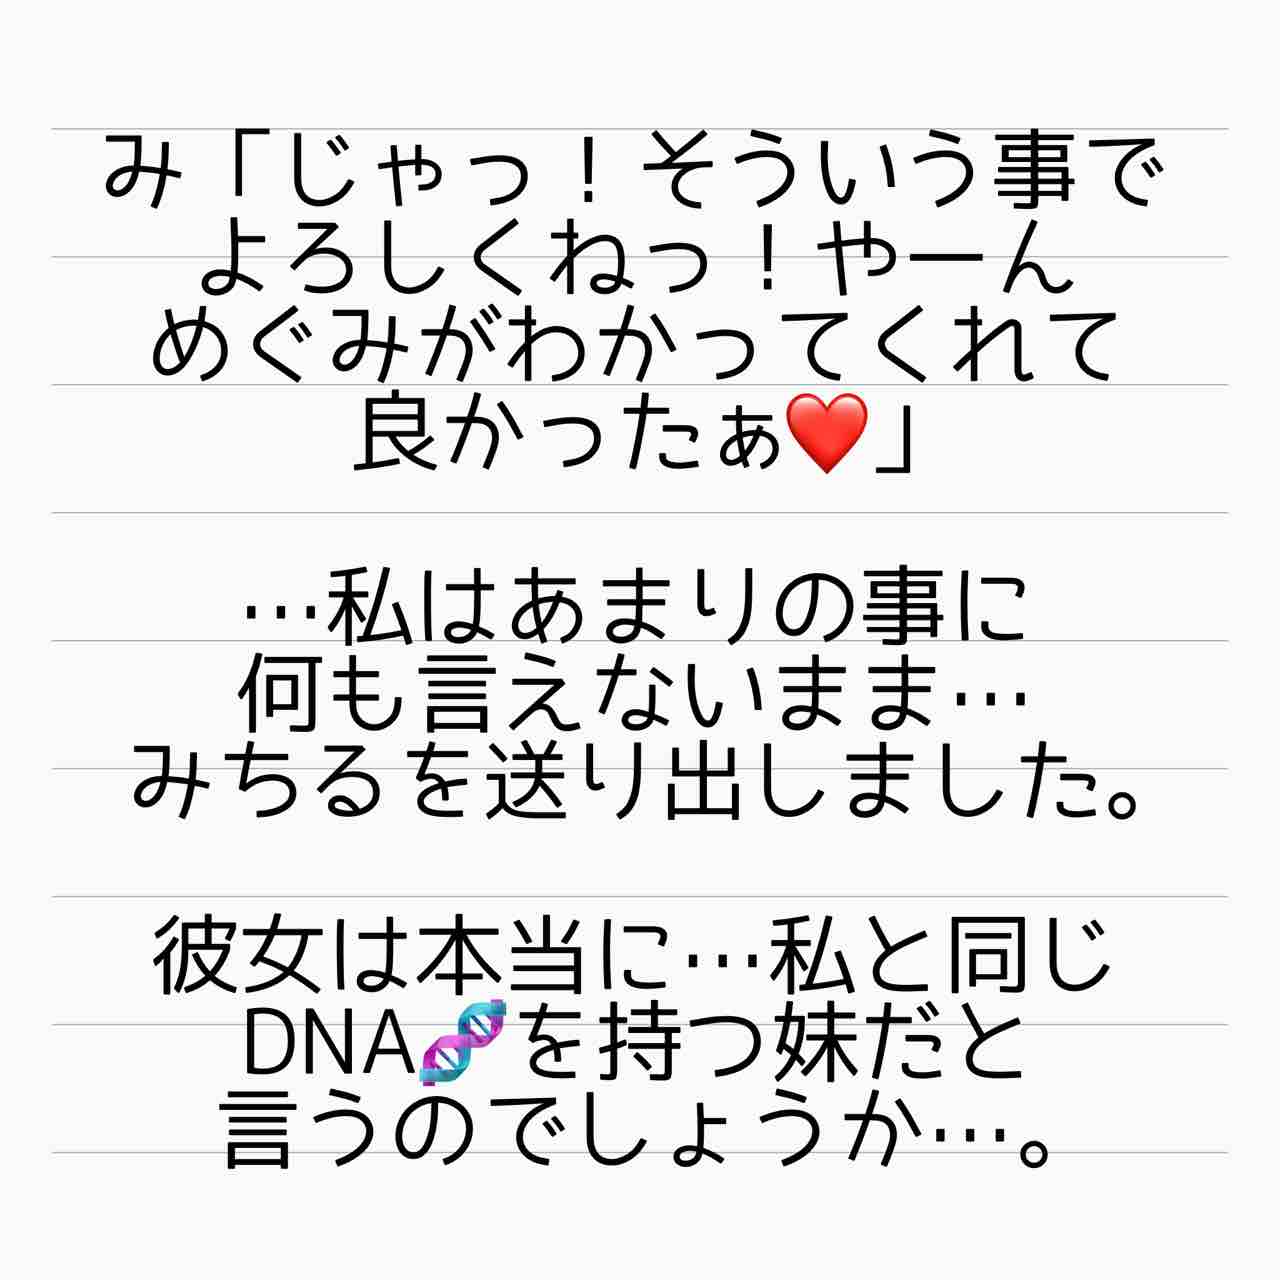 み「じゃっ！そういう事で
よろしくねっ！やーん
めぐみがわかってくれて
良かったぁ❤️」
…私はあまりの事に
何も言えないまま…
みちるを送り出しました。
彼女は本当に…私と同じ
DNA🧬を持つ妹だと
言うのでしょうか…。